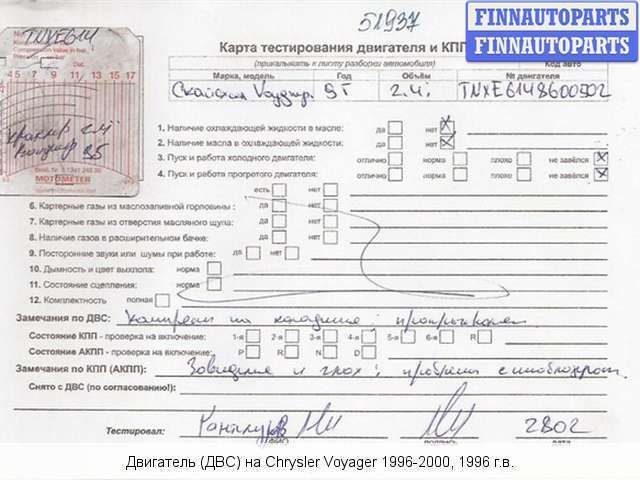 51937
FINNAUTOPARTS
FINNAUTOPARTS
TNXE614
4 5 7 9 10 11 13 15 17
MOTOMETER
Карта тестирования двигателя и КПП
(прикалывать к листу разборки автомобиля)
Код авто
Марка, модель Год Объём № двигателя
Вояджер 95 2.4i TNXE6148600502
1. Наличие охлаждающей жидкости в масле: да нет
2. Наличие масла в охлаждающей жидкости: да нет
3. Пуск и работа холодного двигателя: отлично норма плохо не завёлся
4. Пуск и работа прогретого двигателя: отлично норма плохо не завёлся
есть нет
6. Картерные газы из маслозаливной горловины: да нет
7. Картерные газы из отверстия масляного щупа: да нет
8. Наличие газов в расширительном бачке: да нет
9. Посторонние звуки или шумы при работе: да нет
10. Дымность и цвет выхлопа: норма
11. Состояние сцепления: норма
12. Комплектность полная
Замечания по ДВС:
Состояние КПП - проверка на включение: 1-я 2-я 3-я 4-я 5-я 6-я R
Состояние АКПП - проверка на включение: P R N D
Замечания по КПП (АКПП):
Снято с ДВС (по согласованию!):
Тестировал: 2802
ФИО подпись дата
Двигатель (ДВС) на Chrysler Voyager 1996-2000, 1996 г.в.